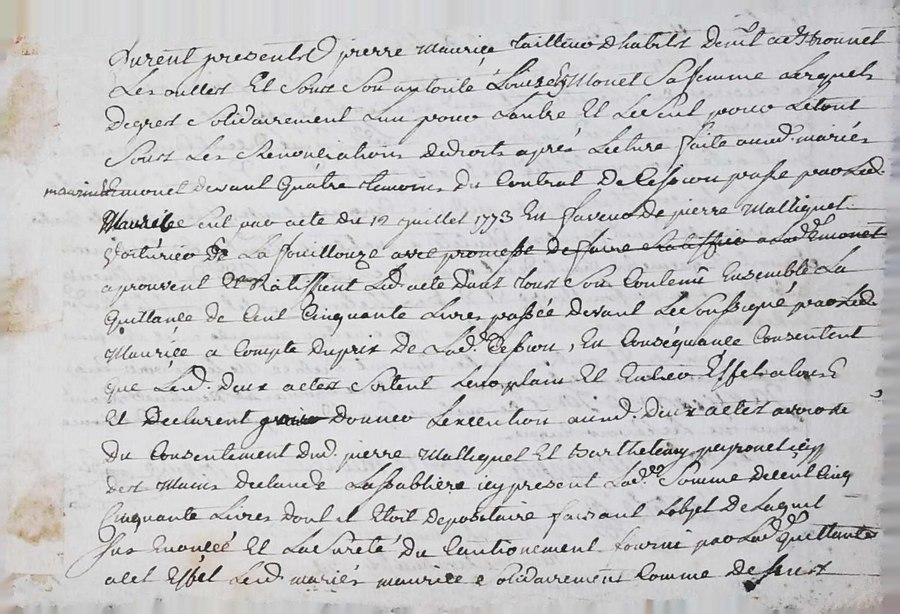 furent presents pierre Mauriée tailleur d'habits dem.t a
Les oulles Et sous Son autorité Louise Emonet Sa femme Lesquels
Degrest solidairement L'un pour L'autre Et Le seul pour Le tout
Sous Les Renonciations de droits après Lecture faite auxd. mariés
Emonet devant quatre temoins du Contrat De Cession passe par Led.
Mauriée seul par acte du 12 juillet 1773 En faveur de pierre Malliquet
Voiturier de La fouillouze avec promesse de faire Ratiffier a Lad. Emonet
aprouvent Et Ratiffient Led. acte dans tous Son Contenu Ensemble La
quittance de Cent Cinquante Livres passée devant Le soussigné par Led.
Mauriée a Compte du prix de Lad. Cession, En Conséquence Consentent
que Lesd. deux actes sortent Leur plain Et Entier Effet
Et Declarent donner L'exeention auxd. deux actes
du Consentement dud. pierre Malliquet Et Barthelemy peyronet
des Mains de claude Lassablière icy present Lad. Somme de cent Cinq
Cinquante Livres dont il Etoit depositaire faisant L'objet de La quit
sus Enoncée Et La sureté du Cautionnement fourni par Lad. quittance
a cet Effet Lesd. mariés mauriée solidairement Comme dessus